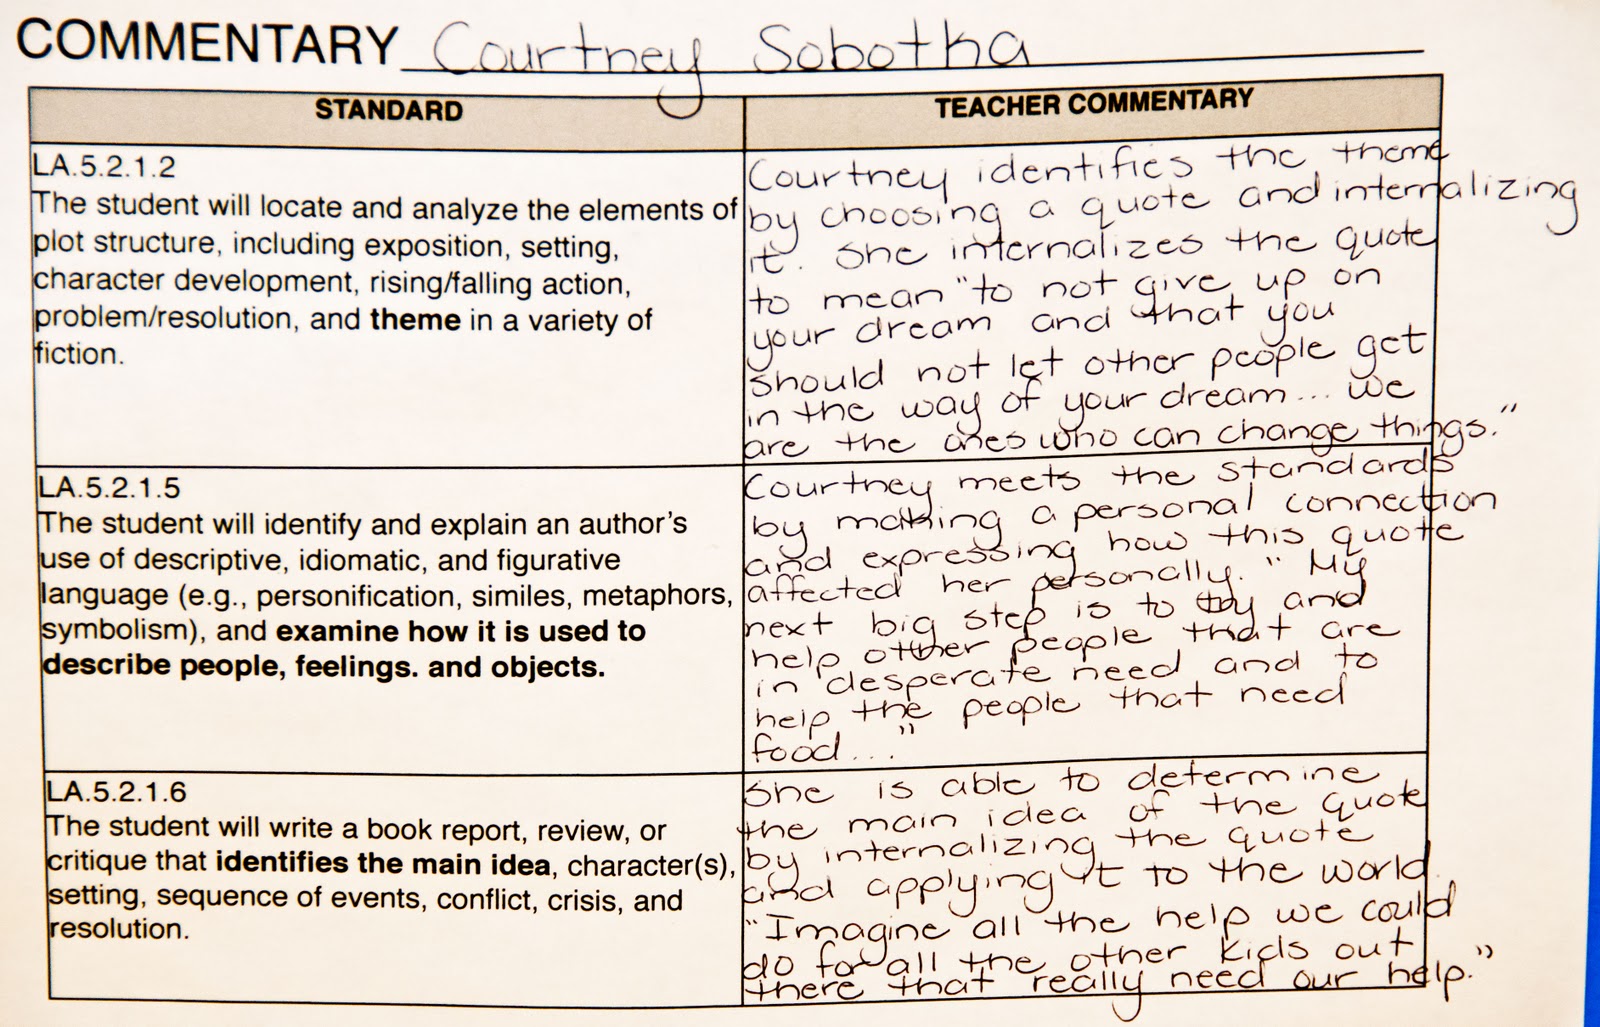 COMMENTARY Courtney Sobotka
STANDARD
TEACHER COMMENTARY
LA.5.2.1.2
The student will locate and analyze the elements of
plot structure, including exposition, setting,
character development, rising/falling action,
problem/resolution, and theme in a variety of
fiction.
Courtney identifies the theme
by choosing a quote and internalizing
it. She internalizes the quote
to mean "to not give up on
your dream and that you
should not let other people get
in the way of your dream... we
are the ones who can change things."
LA.5.2.1.5
The student will identify and explain an author's
use of descriptive, idiomatic, and figurative
language (e.g., personification, similes, metaphors,
symbolism), and examine how it is used to
describe people, feelings. and objects.
Courtney meets the standards
by making a personal connection
and expressing how this quote
affected her personally. "My
next big step is to try and
help other people that are
in desperate need and to
help the people that need
food..."
LA.5.2.1.6
The student will write a book report, review, or
critique that identifies the main idea, character(s),
setting, sequence of events, conflict, crisis, and
resolution.
She is able to determine
the main idea of the quote
by internalizing the quote
and applying it to the world.
"Imagine all the help we could
do for all the other kids out
there that really need our help."